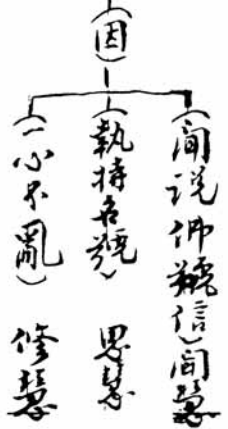 (因)
(聞說佛號信)聞慧
(執持名號)思慧
(一心不亂)修慧